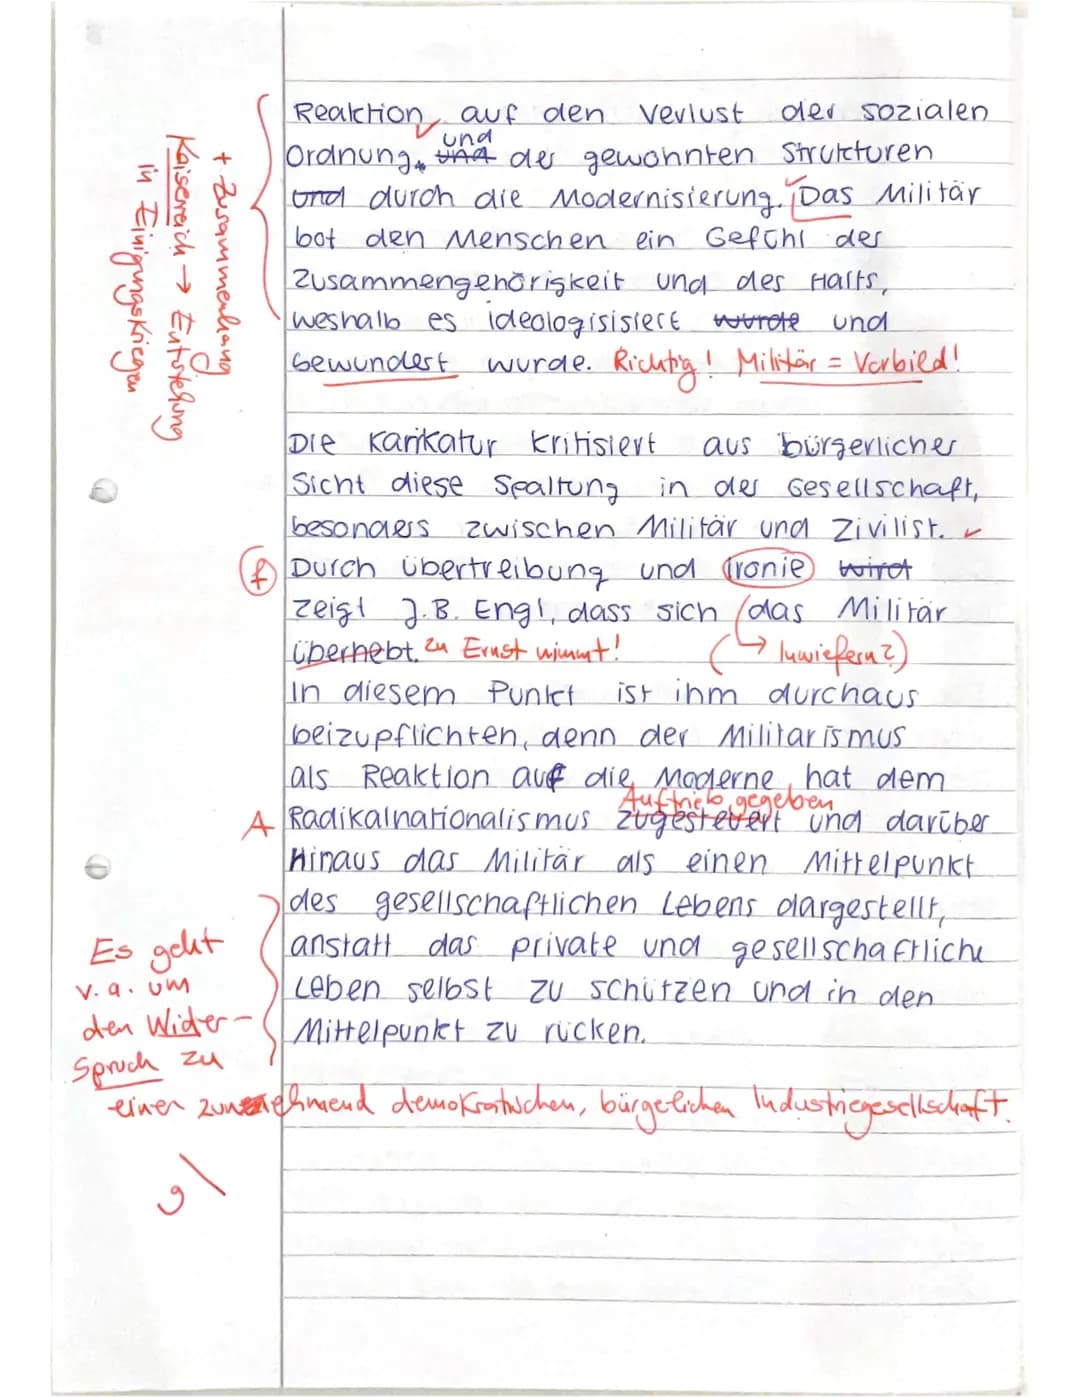 Reaktion auf den Verlust der sozialen
und
Ordnung. und der gewohnten Strukturen
und durch die Modernisierung. Das Militär
bot den Menschen ein Gefühl der
Zusammengehörigkeit und des Halts,
weshalb es ideologisisiert wurde und
bewundert wurde. Richtig! Militär = Vorbild!
+ Zusammenhang
Kaiserreich → Entstehung
in Einigungskriegen
Die Karikatur kritisiert aus bürgerlicher
Sicht diese Spaltung in der Gesellschaft,
besonders zwischen Militär und Zivilist.
f Durch Übertreibung und Ironie wird
zeigt J.B. Engl, dass sich das Militär
überhebt. zu Ernst nimmt! (→ Inwiefern?)
In diesem Punkt ist ihm durchaus
beizupflichten, denn der Militarismus
als Reaktion auf die Moderne hat dem
Auftrieb gegeben
A Radikalnationalismus zugesteuert und darüber
Hinaus das Militär als einen Mittelpunkt
des gesellschaftlichen Lebens dargestellt,
anstatt das private und gesellschaftliche
Leben selbst zu schützen und in den
Mittelpunkt zu rücken.
Es geht
v.a. um
den Wider-
spruch zu
einer zunehmend demokratischen, bürgerlichen Industriegesellschaft.